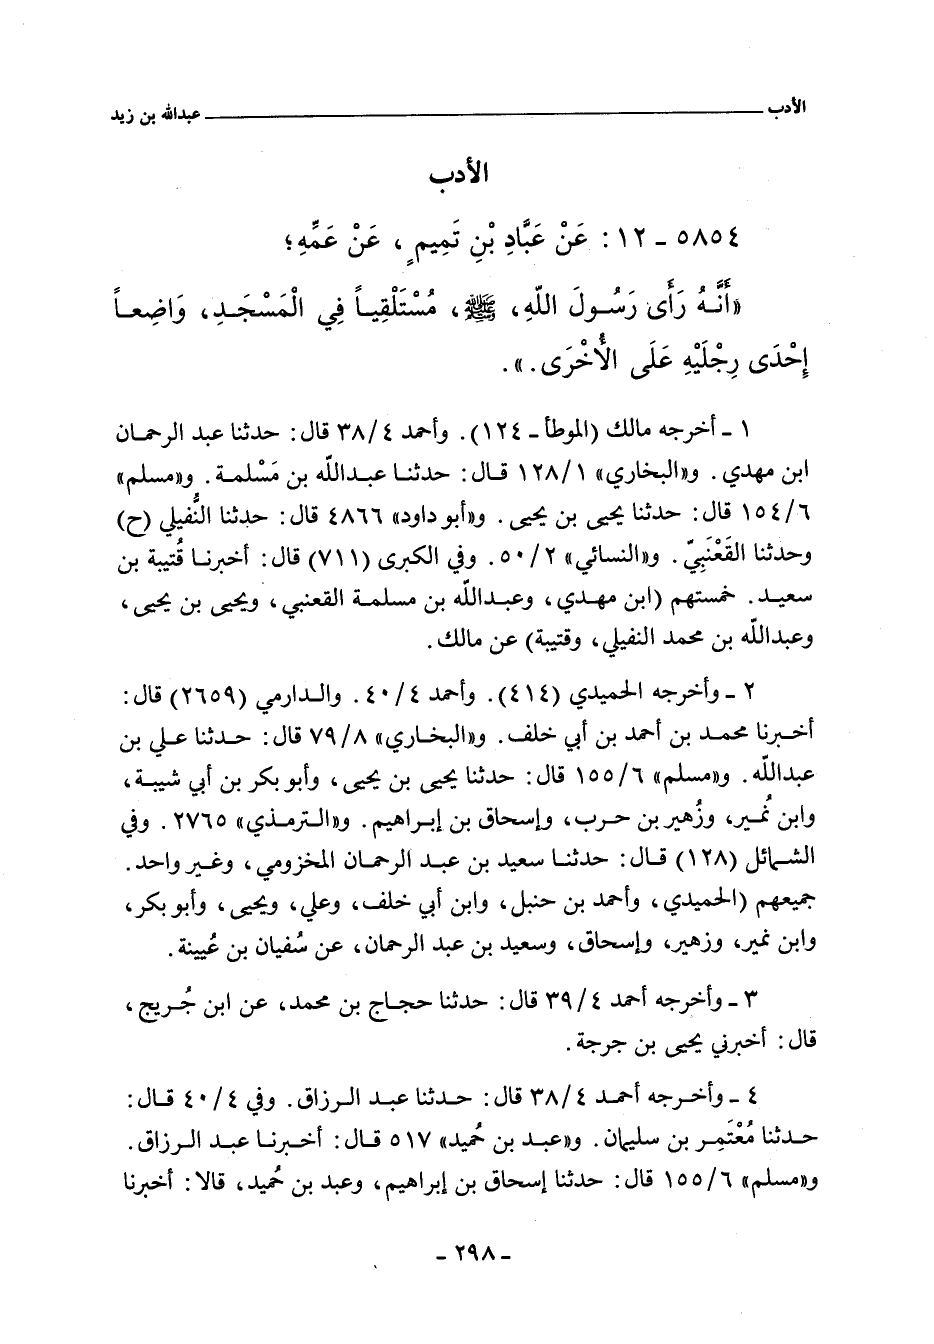 الأدب عبدالله بن زيد
الأدب
٥٨٥٤ - ١٢: عَنْ عَبَّادِ بْنِ تَمِيمٍ، عَنْ عَمِّهِ؛
«أَنَّهُ رَأَى رَسُولَ اللّهِ، ﷺ، مُسْتَلْقِياً فِي الْمَسْجَدِ، وَاضِعاً
إِحْدَى رِجْلَيْهِ عَلَى الْأُخْرَى.».
١ - أخرجه مالك (الموطأ - ١٢٤). وأحمد ٣٨/٤ قال: حدثنا عبد الرحمان
ابن مهدي. و«البخاري» ١٢٨/١ قال: حدثنا عبدالله بن مَسْلمة. و«مسلم»
١٥٤/٦ قال: حدثنا يحيى بن يحيى. و«أبو داود» ٤٨٦٦ قال: حدثنا النُّفيلي (ح)
وحدثنا القَعْنَبِيّ. و«النسائي» ٥٠/٢. وفي الكبرى (٧١١) قال: أخبرنا قُتيبة بن
سعيد. خمستهم (ابن مهدي، وعبدالله بن مسلمة القعنبي، ويحيى بن يحيى،
وعبدالله بن محمد النفيلي، وقتيبة) عن مالك.
٢ - وأخرجه الحميدي (٤١٤). وأحمد ٤٠/٤. والدارمي (٢٦٥٩) قال:
أخبرنا محمد بن أحمد بن أبي خلف. و«البخاري» ٧٩/٨ قال: حدثنا علي بن
عبدالله. و«مسلم» ١٥٥/٦ قال: حدثنا يحيى بن يحيى، وأبو بكر بن أبي شيبة،
وابن نُمير، وزُهير بن حرب، وإسحاق بن إبراهيم. و«الترمذي» ٢٧٦٥. وفي
الشمائل (١٢٨) قال: حدثنا سعيد بن عبد الرحمان المخزومي، وغير واحد.
جميعهم (الحميدي، وأحمد بن حنبل، وابن أبي خلف، وعلي، ويحيى، وأبو بكر،
وابن نمير، وزهير، وإسحاق، وسعيد بن عبد الرحمان، عن سُفيان بن عُيينة.
٣ - وأخرجه أحمد ٣٩/٤ قال: حدثنا حجاج بن محمد، عن ابن جُريج،
قال: أخبرني يحيى بن جرجة.
٤ - وأخرجه أحمد ٣٨/٤ قال: حدثنا عبد الرزاق. وفي ٤٠/٤ قال:
حدثنا مُعْتَمِر بن سليمان. و«عبد بن حُميد» ٥١٧ قال: أخبرنا عبد الرزاق.
و«مسلم» ١٥٥/٦ قال: حدثنا إسحاق بن إبراهيم، وعبد بن حُميد، قالا: أخبرنا
- ٢٩٨ -